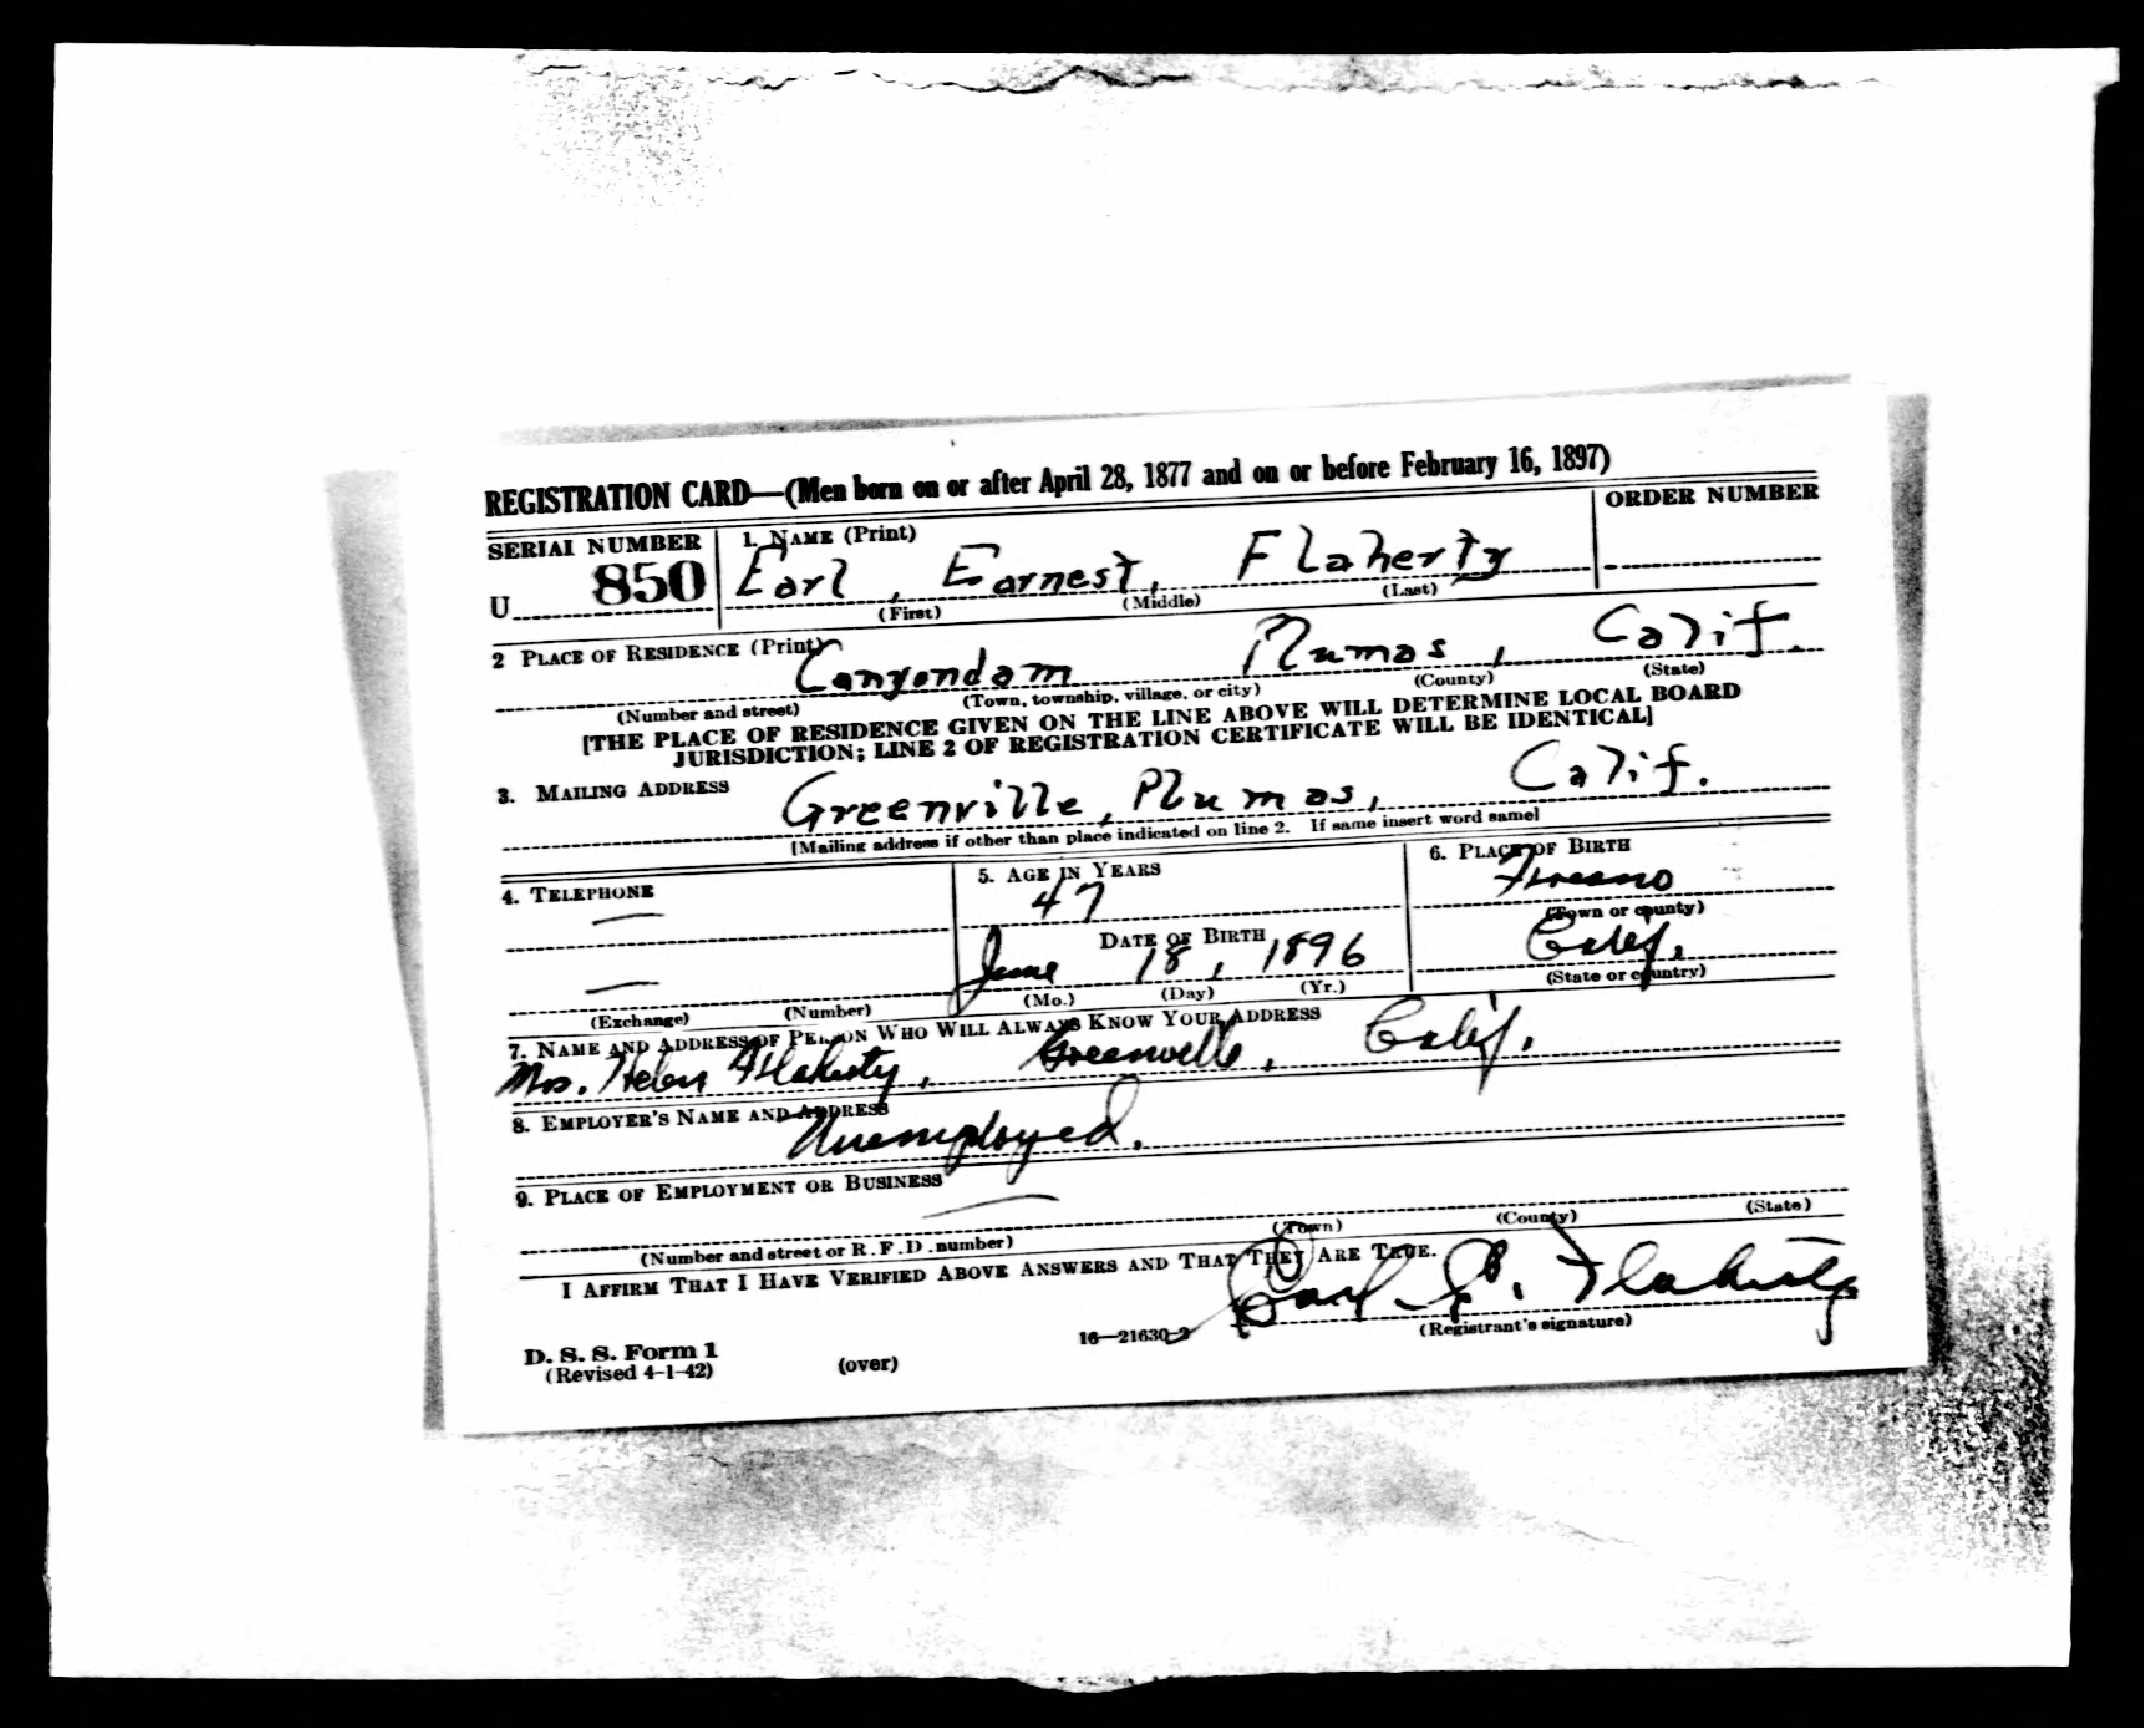 REGISTRATION CARD—(Men born on or after April 28, 1877 and on or before February 16, 1897)
SERIAL NUMBER
1. NAME (Print)
ORDER NUMBER
U 850
Earl, Earnest, Flaherty
(First) (Middle) (Last)
2 PLACE OF RESIDENCE (Print)
Canyondam Plumas, Calif.
(Number and street) (Town, township, village, or city) (County) (State)
[THE PLACE OF RESIDENCE GIVEN ON THE LINE ABOVE WILL DETERMINE LOCAL BOARD
JURISDICTION; LINE 2 OF REGISTRATION CERTIFICATE WILL BE IDENTICAL]
3. MAILING ADDRESS
Greenville, Plumas, Calif.
[Mailing address if other than place indicated on line 2. If same insert word same]
4. TELEPHONE
—
—
(Exchange) (Number)
5. AGE IN YEARS
47
DATE OF BIRTH
June 18, 1896
(Mo.) (Day) (Yr.)
6. PLACE OF BIRTH
Fresno
(Town or county)
Calif.
(State or country)
7. NAME AND ADDRESS OF PERSON WHO WILL ALWAYS KNOW YOUR ADDRESS
Mrs. Helen Flaherty, Greenville, Calif.
8. EMPLOYER'S NAME AND ADDRESS
Unemployed.
9. PLACE OF EMPLOYMENT OR BUSINESS
—
(Number and street or R. F. D. number) (Town) (County) (State)
I AFFIRM THAT I HAVE VERIFIED ABOVE ANSWERS AND THAT THEY ARE TRUE.
Earl E. Flaherty
(Registrant's signature)
D. S. S. Form 1
(Revised 4-1-42)
(over)
16—21630-2